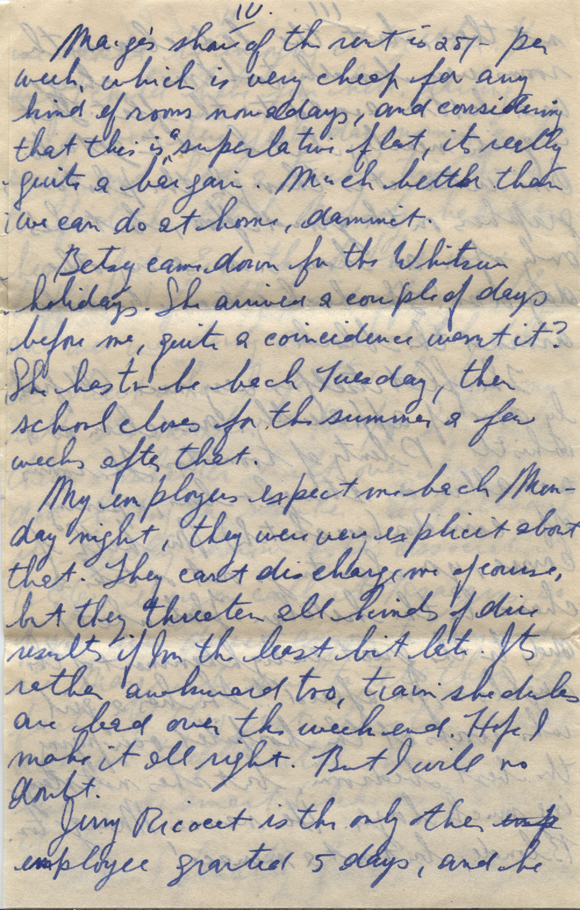 IV.
Marge's share of the rent is 25/- per
week, which is very cheap for any
kind of rooms nowadays, and considering
that this is a superlative flat, its really
quite a bargain. Much better than
we can do at home, dammit.
Betsy came down for the Whitsun
holidays. She arrived a couple of days
before me, quite a coincidence wasnt it?
She has to be back Tuesday, then
school closes for the summer a few
weeks after that.
My employers expect me back Mon-
day night, they were very explicit about
that. They cant discharge me of course,
but they threaten all kinds of dire
results if Im the least bit late. Its
rather awkward too, train shedules
are bad over the week end. Hope I
make it all right. But I will no
doubt.
Jerry Ricocet is the only other emp
employee granted 5 days, and he